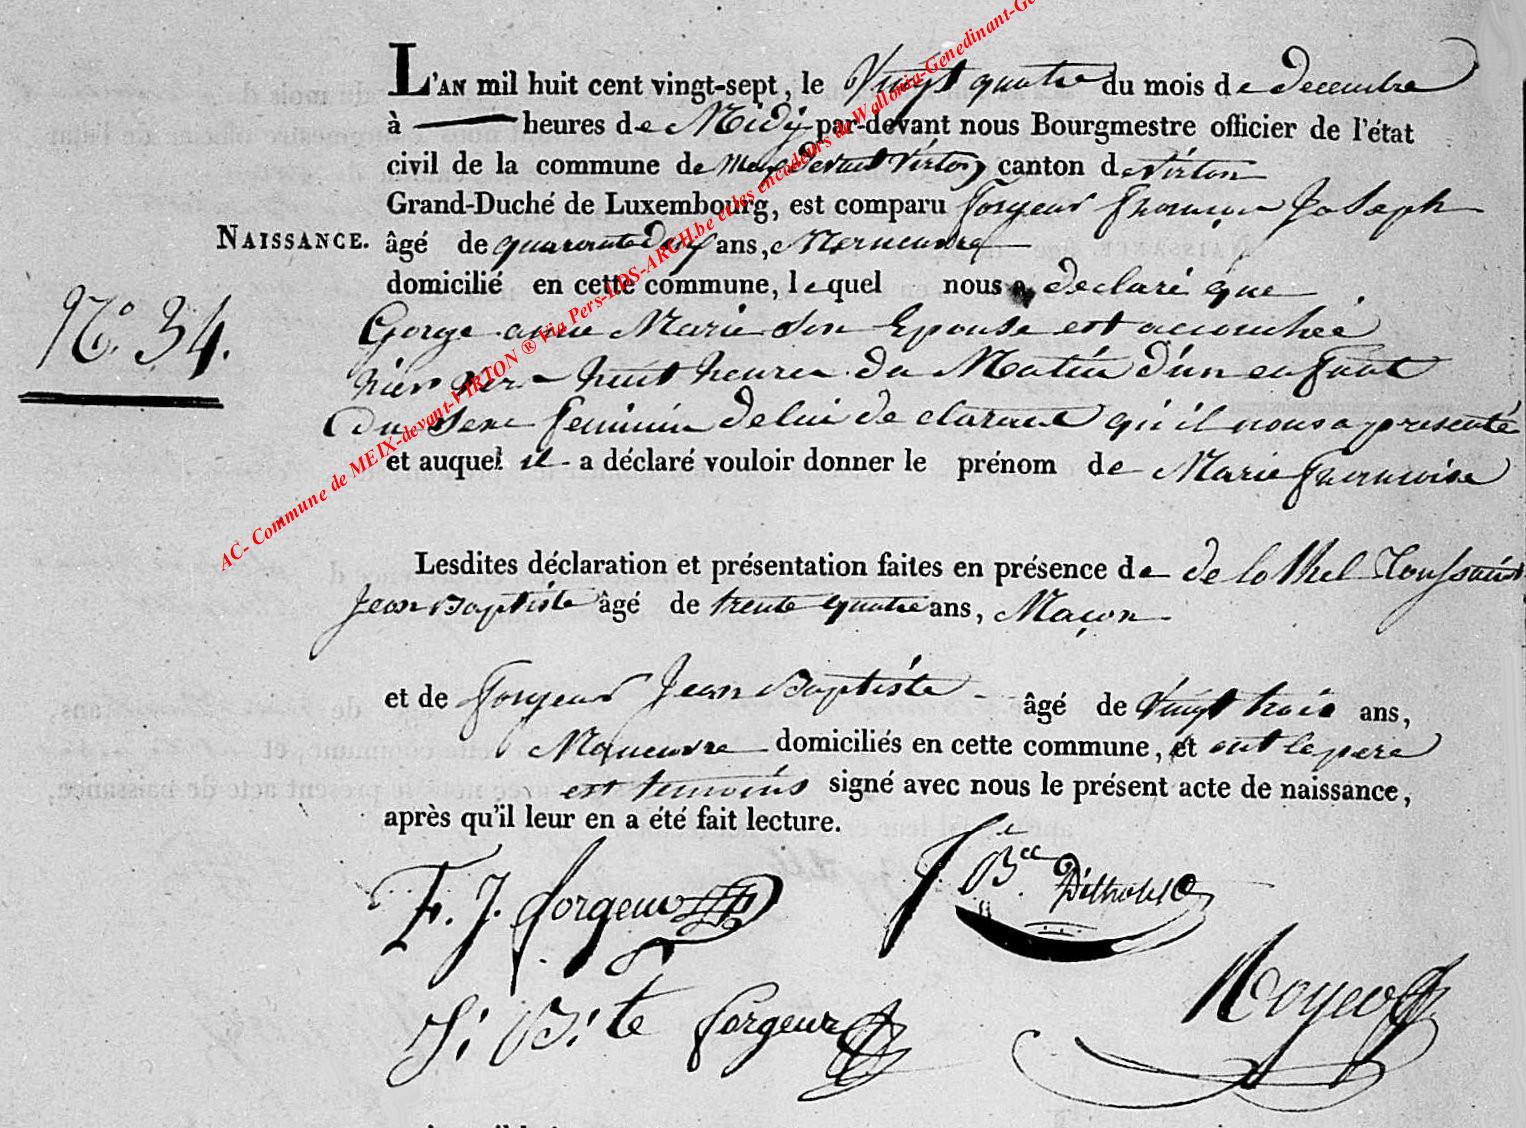 L'AN mil huit cent vingt-sept, le Vingt quatre du mois de decembre
à heures de Midy par-devant nous Bourgmestre officier de l'état
civil de la commune de Meix devant Virton canton de virton
Grand-Duché de Luxembourg, est comparu forgeur françois Joseph
NAISSANCE. âgé de quarante ans, Maneuvre
domicilié en cette commune, lequel nous a declaré que
N.° 34. Gorge anne Marie Son Epouse est accouchée
hier vers huit heures du Matin d'un enfant
du sexe feminin de lui declarant qu'il nous a presenté
et auquel il a déclaré vouloir donner le prénom de Marie francoise
AC- Commune de MEIX-devant-VIRTON ® Via Pers-LDS-ARCH.be et les encodeurs de Wallonia-Genedinant-Ge
Lesdites déclaration et présentation faites en présence de Toussaint
Jean Baptiste âgé de trente quatre ans, Maçon
et de forgeur Jean Baptiste âgé de Vingt trois ans,
Maneuvre domiciliés en cette commune, et ont le pere
est temoins signé avec nous le présent acte de naissance,
après qu'il leur en a été fait lecture.
F. J. forgeur
J. B.te forgeur